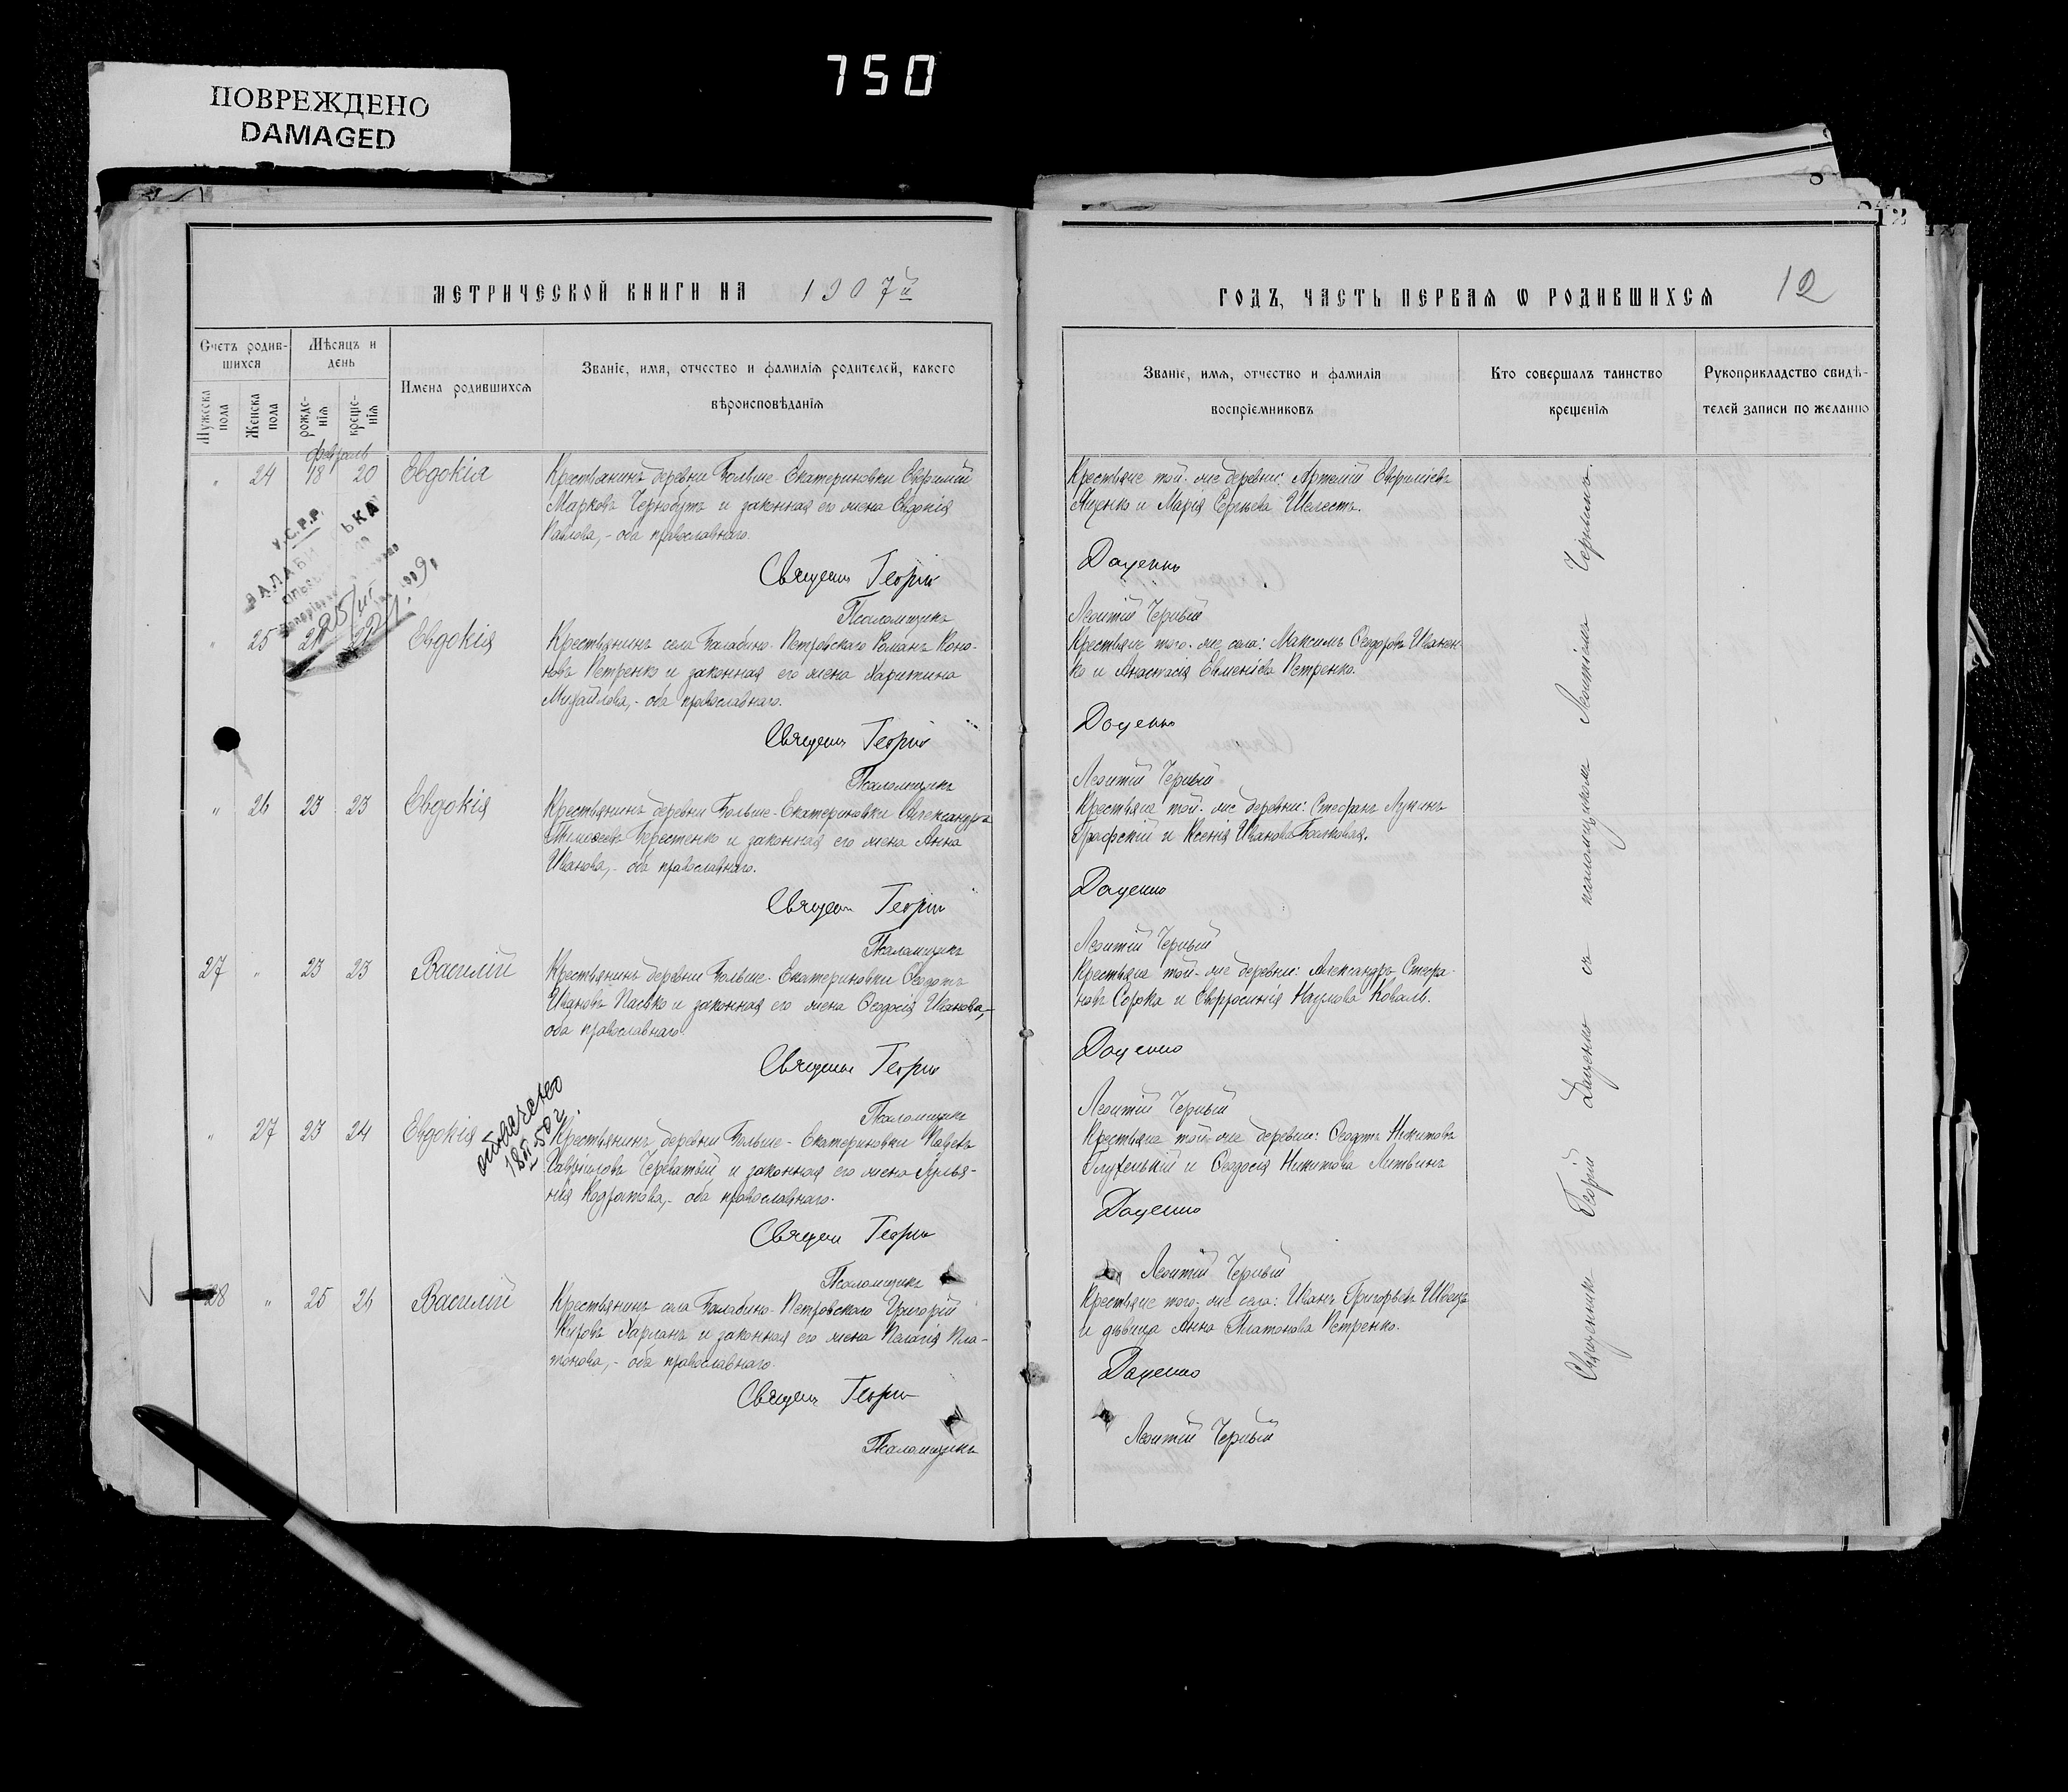 750
ПОВРЕЖДЕНО
DAMAGED
12
МЕТРИЧЕСКОЙ КНИГИ НА 1907й
ГОДЪ, ЧАСТЬ ПЕРВАЯ Ѡ РОДИВШИХСЯ
12
Счетъ родив-
шихся
Мужеска
пола
Женска
пола
Мѣсяцъ и
день
рожде-
нія
креще-
нія
Имена родившихся
Званіе, имя, отчество и фамилія родителей, какого
вѣроисповѣданія
Званіе, имя, отчество и фамилія
воспріемниковъ
Кто совершалъ таинство
крещенія
Рукоприкладство свидѣ-
телей записи по желанію
Февраль
" 24 18 20 Евдокія
Крестьянинъ деревни Больше-Екатериновки Евфимій
Марковъ Чернобутъ и законная его жена Евдокія
Павлова,- оба православнаго.
Священ Георгій
Псаломщикъ
Крестьяне той-же деревни: Артемій Евфиміевъ
Яценко и Марія Сергѣева Шелестъ.
Даценко
Леонтій Черный
У.С.Р.Р.
" 25 21 22 Евдокія
Крестьянинъ села Балабино-Петровскаго Романъ Коно-
новъ Петренко и законная его жена Харитина
Михайлова,- оба православнаго.
Священ Георгій
Псаломщикъ
Крестьяне того-же села: Максимъ Ѳеодоровъ Иванен-
ко и Анастасія Евменіева Петренко.
Даценко
Леонтій Черный
" 26 23 23 Евдокія
Крестьянинъ деревни Больше-Екатериновки Александръ
Тимоѳеевъ Берестенко и законная его жена Анна
Иванова,- оба православнаго.
Священ Георгій
Псаломщикъ
Крестьяне той-же деревни: Стефанъ Лукинъ
Графскій и Ксенія Иванова Балковая.
Даценко
Леонтій Черный
27 " 23 23 Василій
Крестьянинъ деревни Больше-Екатериновки Ѳеодотъ
Ивановъ Пасько и законная его жена Ѳеодосія Иванова,-
оба православнаго.
Священ Георгій
Псаломщикъ
Крестьяне той-же деревни: Александръ Стефа-
новъ Сорока и Евфросинія Наумова Коваль.
Даценко
Леонтій Черный
" 27 23 24 Евдокія
Крестьянинъ деревни Больше-Екатериновки Павелъ
Гавріиловъ Череватый и законная его жена Ульян-
нія Кодратова,- оба православнаго.
Священ Георгій
Псаломщикъ
Крестьяне той-же деревни: Ѳеодотъ Никитовъ
Глуфенькій и Ѳеодосія Никитова Литвинъ
Даценко
Леонтій Черный
28 " 25 26 Василій
Крестьянинъ села Балабино-Петровскаго Григорій
Кировъ Харланъ и законная его жена Пелагія Пла-
тонова,- оба православнаго.
Священ Георгій
Псаломщикъ
Крестьяне того-же села: Иванъ Григорьевъ Швецъ
и дѣвица Анна Платонова Петренко.
Даценко
Леонтій Черный
Священникъ Георгій Даценко съ псаломщикомъ Леонтіемъ Чернымъ.